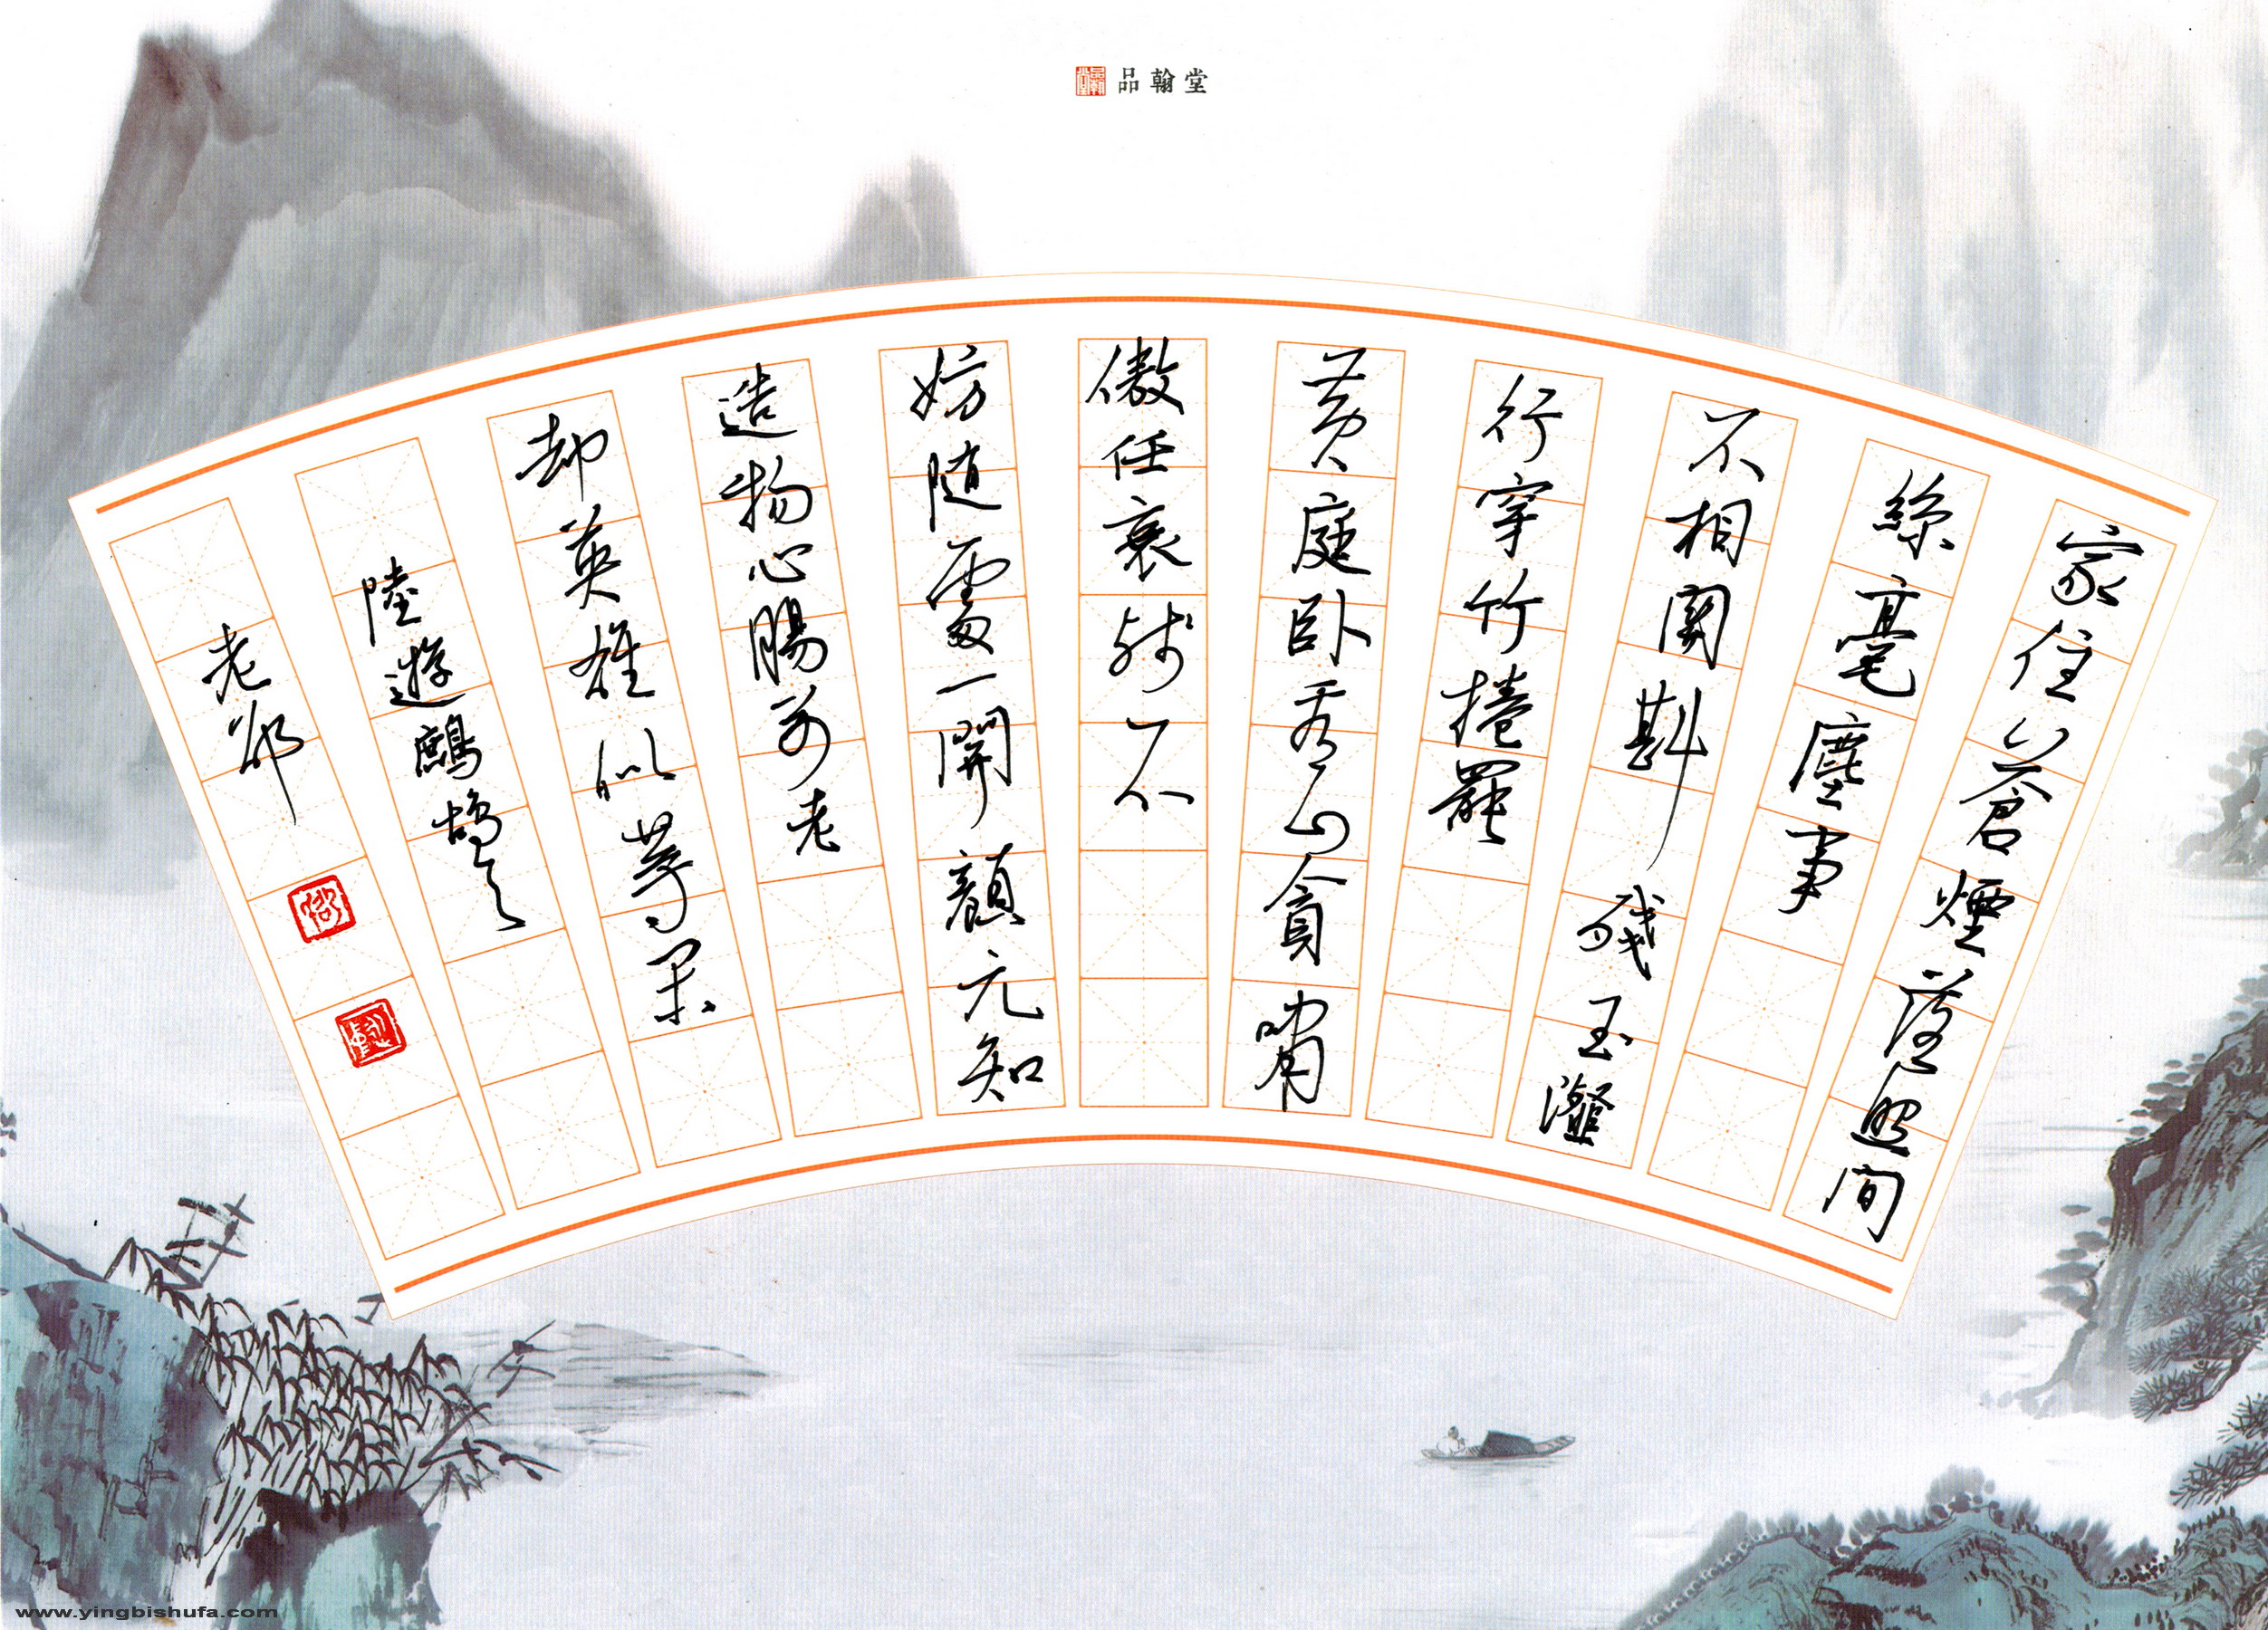 品翰堂
家住蒼煙落照間
絲毫塵事
不相関斟殘玉瀣
行穿竹捲罷
黄庭卧看山貪嘯
傲任衰殘不
妨随處一開顔元知
造物心腸别老
却英雄似等閑
陸遊鷓鴣天
老
www.yingbishufa.com